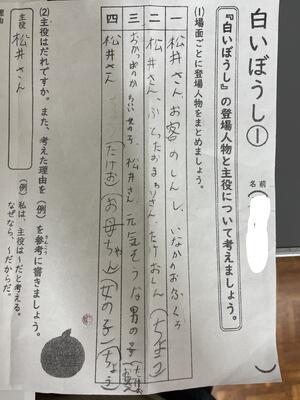 白いぼうし①
名前
『白いぼうし』の登場人物と主役について考えましょう。
(1)場面ごとに登場人物をまとめましょう。
一 松井さん お客のしんし、いなかのおふくろ
二 松井さん、ふとったおまわりさん、たけおくん(ちょう)
三 おかっぱのかわいい女の子、松井さん 元気そうな男の子(たけお)お母さん
四 松井さん (たけお)(お母ちゃん)(女の子)(ちょう)
(2)主役はだれですか。また、考えた理由を(例)を参考に書きましょう。
さんこう
主役
松井さん
(例)私は、主役は~だと考える。
なぜなら、~だからだ。
理由